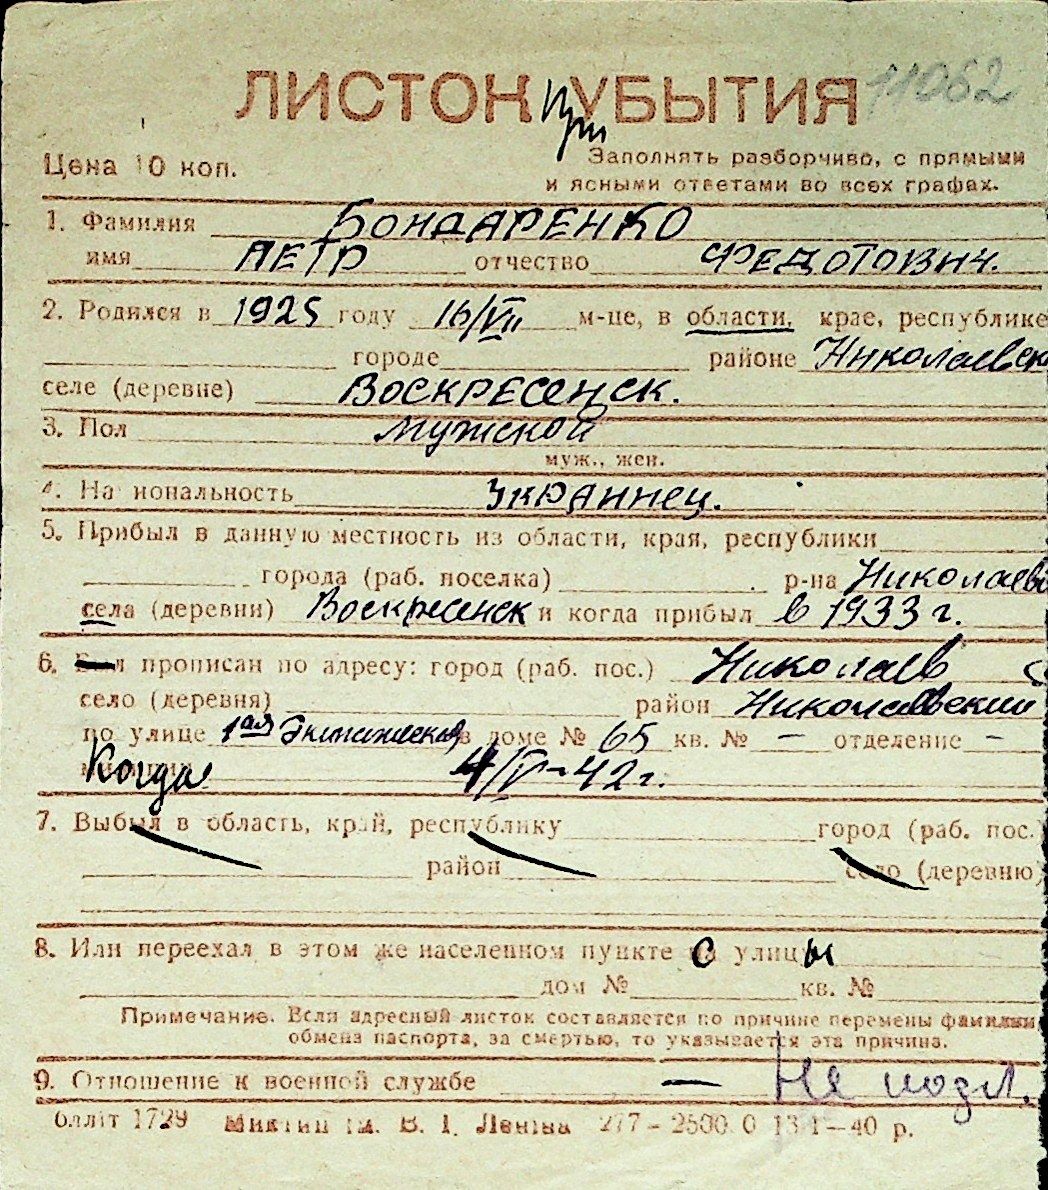 11062
ЛИСТОК УБЫТИЯ
При
Цена 10 коп.
Заполнять разборчиво, с прямыми
и ясными ответами во всех графах.
1. Фамилия БОНДАРЕНКО
имя ПЕТР отчество ФЕДОТОВИЧ.
2. Родился в 1925 году 16/VII м-це, в области, крае, республике
городе районе Николаевск
селе (деревне) Воскресенск.
3. Пол Мужской
муж., жен.
4. На иональность Украинец.
5. Прибыл в данную местность из области, края, республики
города (раб. поселка) р-на Николаевс
села (деревни) Воскресенск и когда прибыл в 1933 г.
6. прописан по адресу: город (раб. пос.) Николаев
село (деревня) район Николаевский
по улице 1ая в доме № 65 кв. № – отделение –
Когда 4/IV–42 г.
7. Выбыл в область, край, республику город (раб. пос.)
район село (деревню)
8. Или переехал в этом же населенном пункте с улицы
дом № кв. №
Примечание. Если адресный листок составляется по причине перемены фамилии,
обмена паспорта, за смертью, то указывается эта причина.
9. Отношение к военной службе – Не подл.
1729 В. І. Леніна 277–2500.0 13 І–40 р.